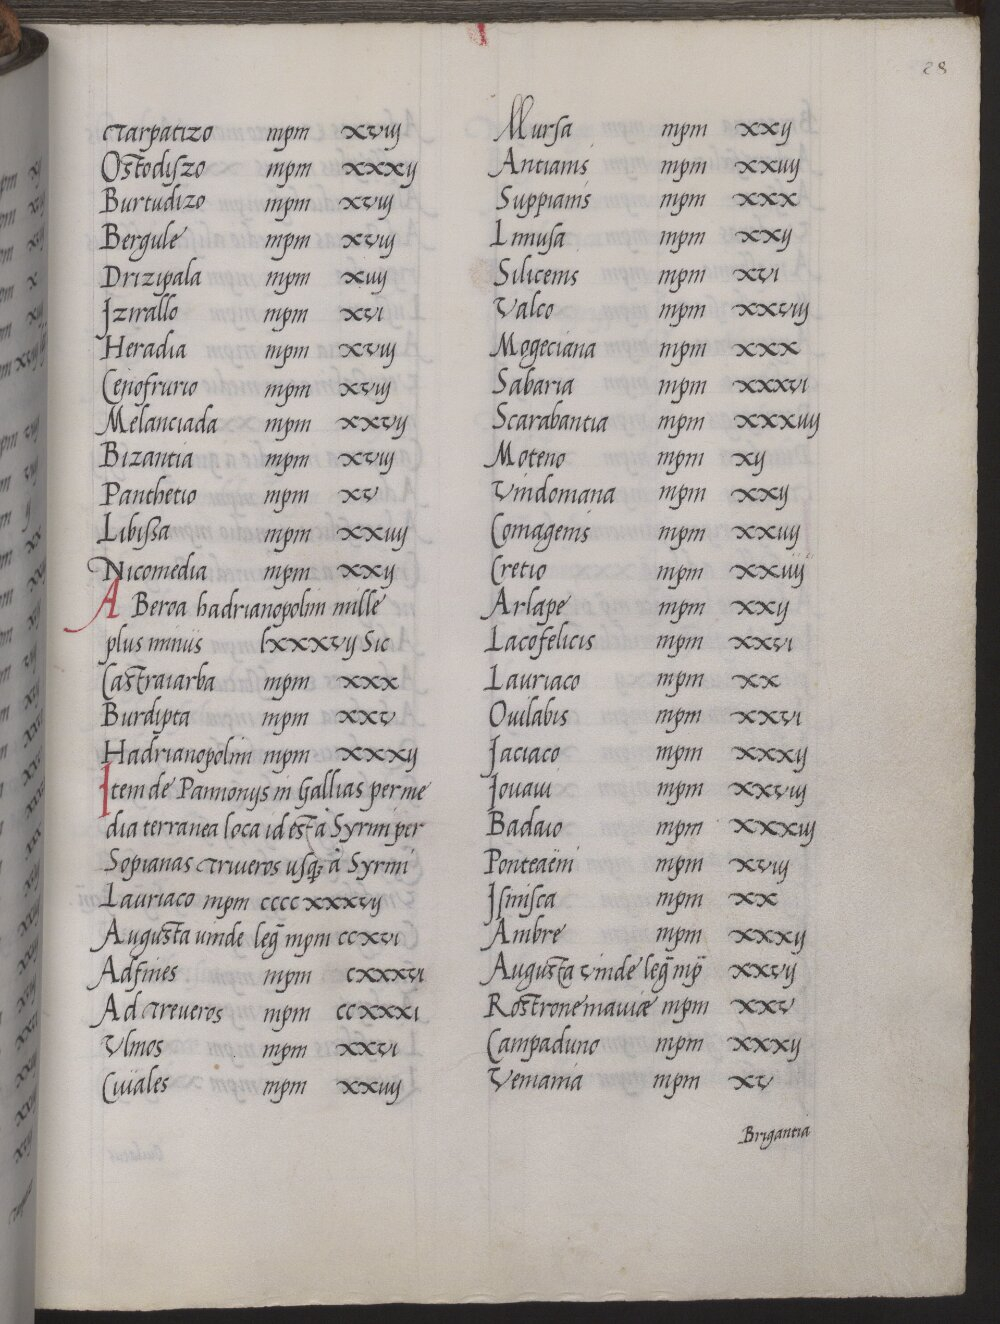 28
Tarpatizo mpm xviij
Ostodiszo mpm xxxij
Burtudizo mpm xviij
Bergule mpm xviij
Drizipala mpm xiiij
Izirallo mpm xvi
Heradia mpm xviij
Cenofrurio mpm xviij
Melanciada mpm xxvij
Bizantia mpm xviij
Panthetio mpm xv
Libissa mpm xxiiij
Nicomedia mpm xxij
A Beroa hadrianopolim mille
plus minus lxxxvij Sic
Castraiarba mpm xxx
Burdipta mpm xxv
Hadrianopolim mpm xxxij
Item de Pannonijs in Gallias per me
dia terranea loca id est à Syrmi per
Sopianas Triueros usq; à Syrmi
Lauriaco mpm ccccxxxvij
Augusta uinde leg̃ mpm ccxvi
Adfines mpm cxxxvi
Ad Treueros mpm ccxxxi
Vlmos mpm xxvi
Cuiales mpm xxiiij
Mursa mpm xxij
Antianis mpm xxiiij
Suppianis mpm xxx
Limusa mpm xxij
Silicenis mpm xvi
Valco mpm xxviij
Mogeciana mpm xxx
Sabaria mpm xxxvi
Scarabantia mpm xxxiiij
Moteno mpm xij
Vindomana mpm xxij
Comagenis mpm xxiiij
Cretio mpm xxiiij
Arlape mpm xxij
Lacofelicis mpm xxvi
Lauriaco mpm xx
Ouilabis mpm xxvi
Iaciaco mpm xxxij
Iouaui mpm xxviij
Badaio mpm xxxiij
Ponteaeni mpm xviij
Isinisca mpm xx
Ambre mpm xxxij
Augusta vinde leg̃ mp̃ xxvij
Rostronemauiæ mpm xxv
Campaduno mpm xxxij
Vemania mpm xv
Brigantia